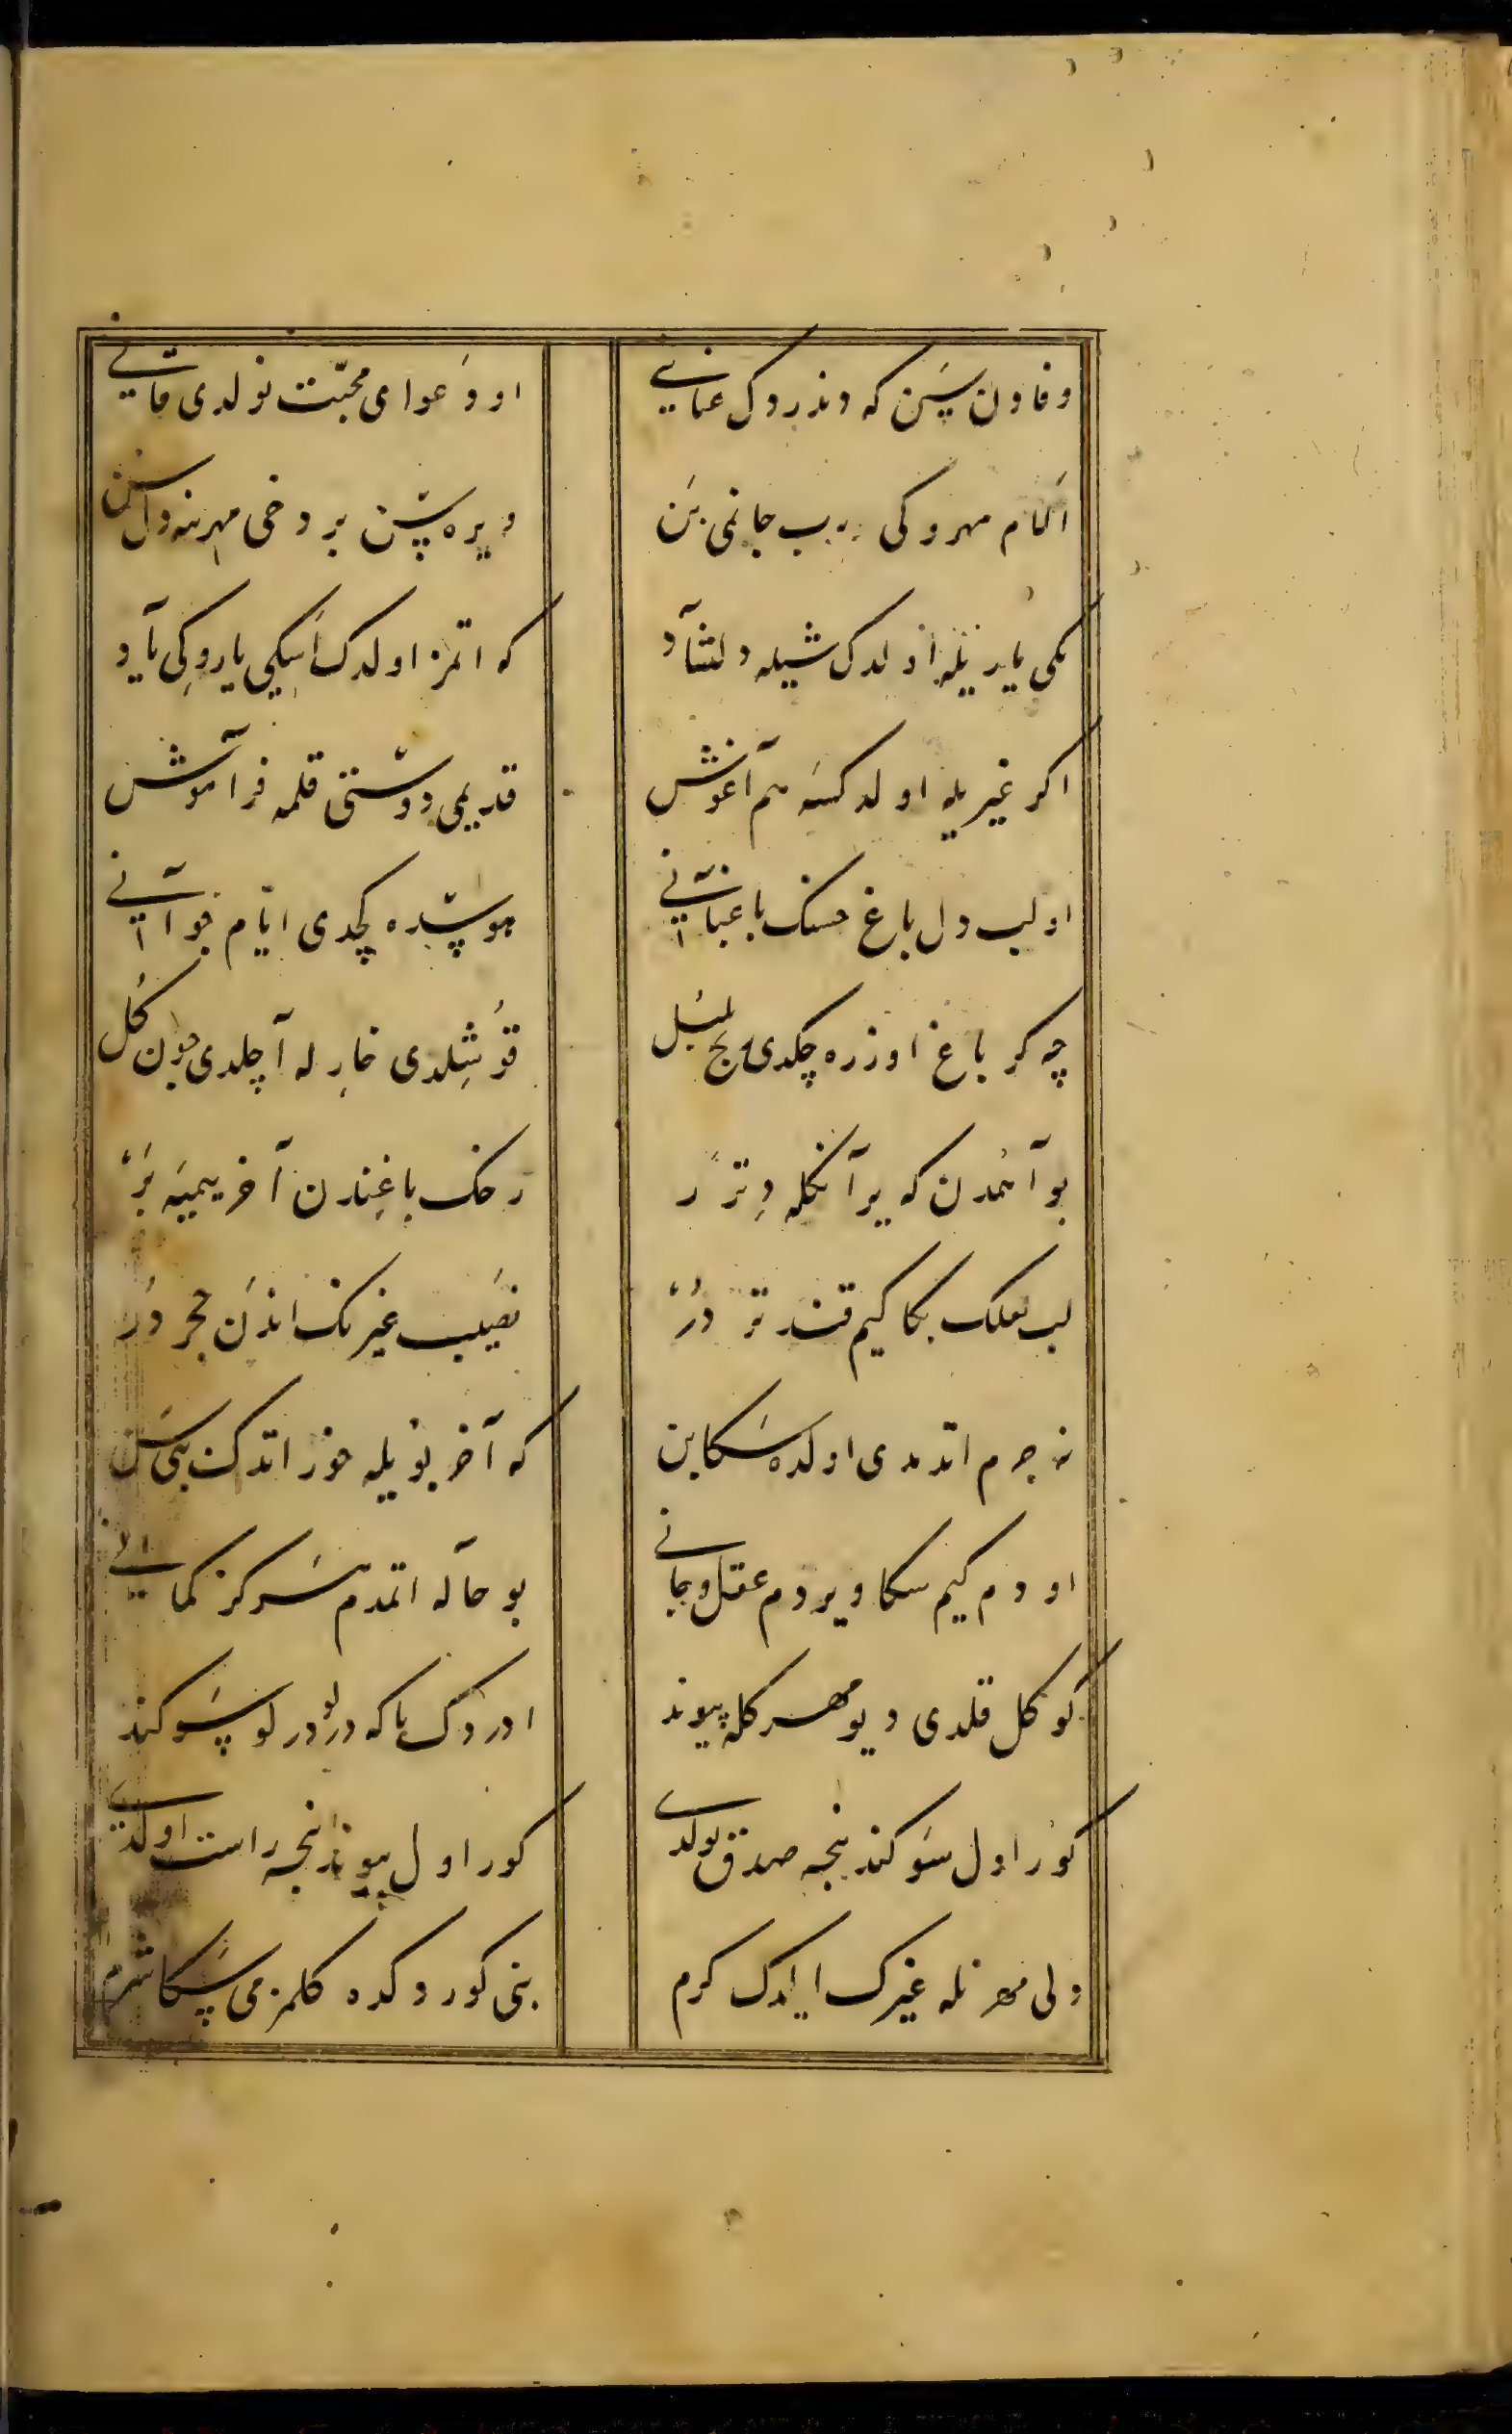 وفادن سن که دندردک عنانی او دعوای محبت نولدی قانی
اکام مهروکی یرب جانمی بن ویره سن بر دخی مهرینه دل سن
یکی یاریله اولدک شیله دلشاد که اتمز اولدک اسکی یاروکی یاد
اکر غیریله اولد کسه هم آغوش قدیمی دوستی قلمه فراموش
اولب دل باغ حسنک باغبانی هوسده کچدی ایام جوانی
چه کر باغ اوزره چکدی رنج بلبل قوشلدی خارله آچلدی چون کل
بو آندن که یر آنکله دتر ر رخک باغندن آخر یمیه بر
لب لعلک بکا کیم قند تر در نصیب غیرنک اندن حجر در
نه جرم اتدمدی اولده سکا بن که آخر بویله خور اتدک بنی سن
اودم کیم سکا ویردم عقل و جانی بو حاله اتمدم هرکز کمانی
کوکل قلدی دیو مهرکله پیوند ادردک یاکه درلو درلو سوکند
کور اول سوکند نیجه صدق بولدی کور اول پیوند نیجه راست اولدی
ولی مهرنله غیرک ایدک کرم بنی کوردوکده کلمزمی سکا شرم